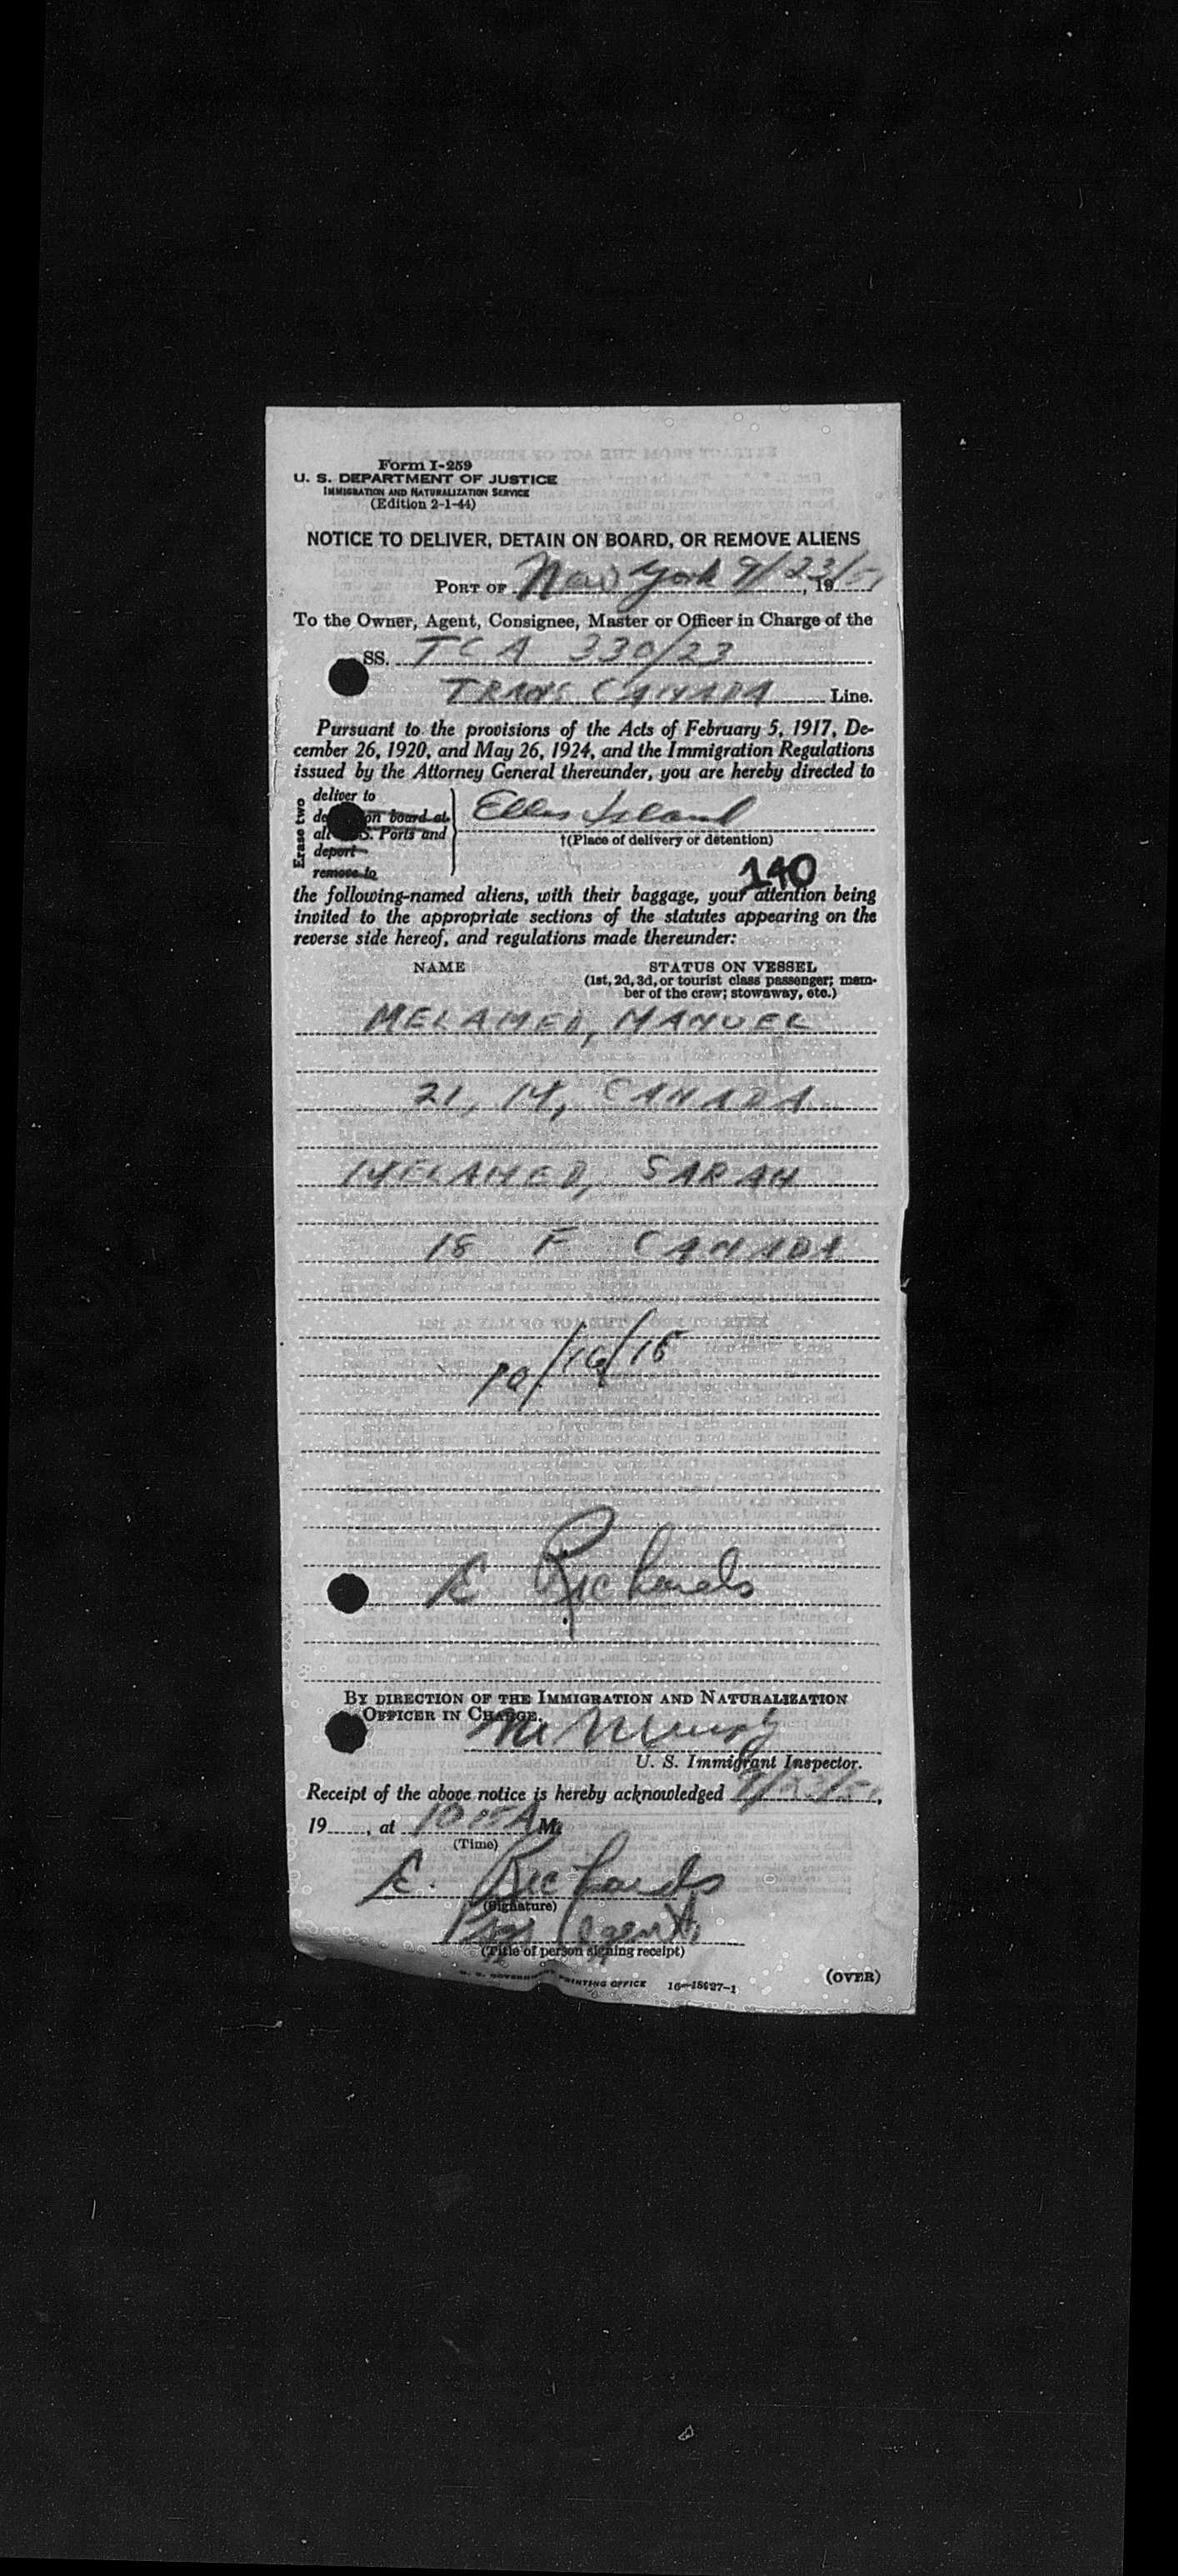 Form I-259
U. S. DEPARTMENT OF JUSTICE
IMMIGRATION AND NATURALIZATION SERVICE
(Edition 2-1-44)
NOTICE TO DELIVER, DETAIN ON BOARD, OR REMOVE ALIENS
PORT OF New York 9/23/51, 19
To the Owner, Agent, Consignee, Master or Officer in Charge of the
SS. TCA 330/23
TRANS CANADA Line.
Pursuant to the provisions of the Acts of February 5, 1917, De-
cember 26, 1920, and May 26, 1924, and the Immigration Regulations
issued by the Attorney General thereunder, you are hereby directed to
Erase two
deliver to
on board at
all S. Ports and
deport
remove to
Ellis Island
†(Place of delivery or detention)
140
the following-named aliens, with their baggage, your attention being
invited to the appropriate sections of the statutes appearing on the
reverse side hereof, and regulations made thereunder:
NAME STATUS ON VESSEL
(1st, 2d, 3d, or tourist class passenger; mem-
ber of the crew; stowaway, etc.)
MELAMED, MANUEL
21, M, CANADA
MELAMED, SARAH
18 F CANADA
10/16/15
E Richards
BY DIRECTION OF THE IMMIGRATION AND NATURALIZATION
OFFICER IN CHARGE.
U. S. Immigrant Inspector.
Receipt of the above notice is hereby acknowledged 9/23/51,
19, at 10 A M.
(Time)
E. Richards
(Signature)
Agent
(Title of person signing receipt)
U. S. GOVERNMENT PRINTING OFFICE 16-18627-1
(OVER)